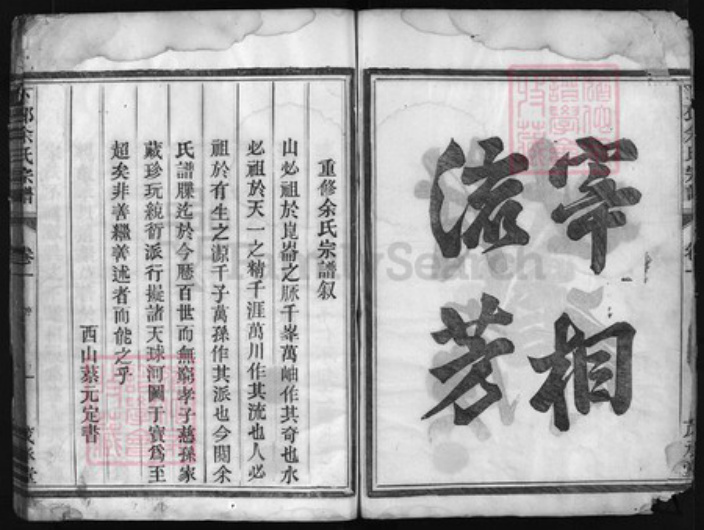 宰相
流芳
重修余氏宗譜叙
山必祖於崑崙之脉千峯萬岫作其奇也水
必祖於天一之精千涯萬川作其流也人必
祖於有生之源千子萬孫作其派也今閱余
氏譜牒迄於今歷百世而無窮孝子慈孫家
藏珍玩統衍派行擬諸天球河圖于寶爲至
超矣非善繼善述者而能之乎
西山蔡元定書
余氏宗譜
卷一
FamilySearch